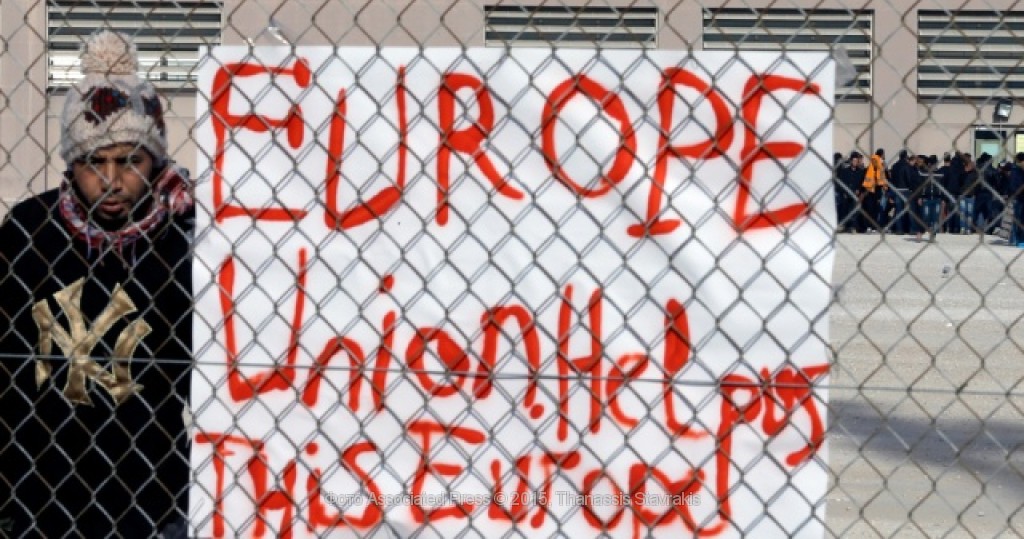 EUROPE
Union. Help us
THis Europe
NY
Фото Associated Press © 2015, Thanassis Stavrakis